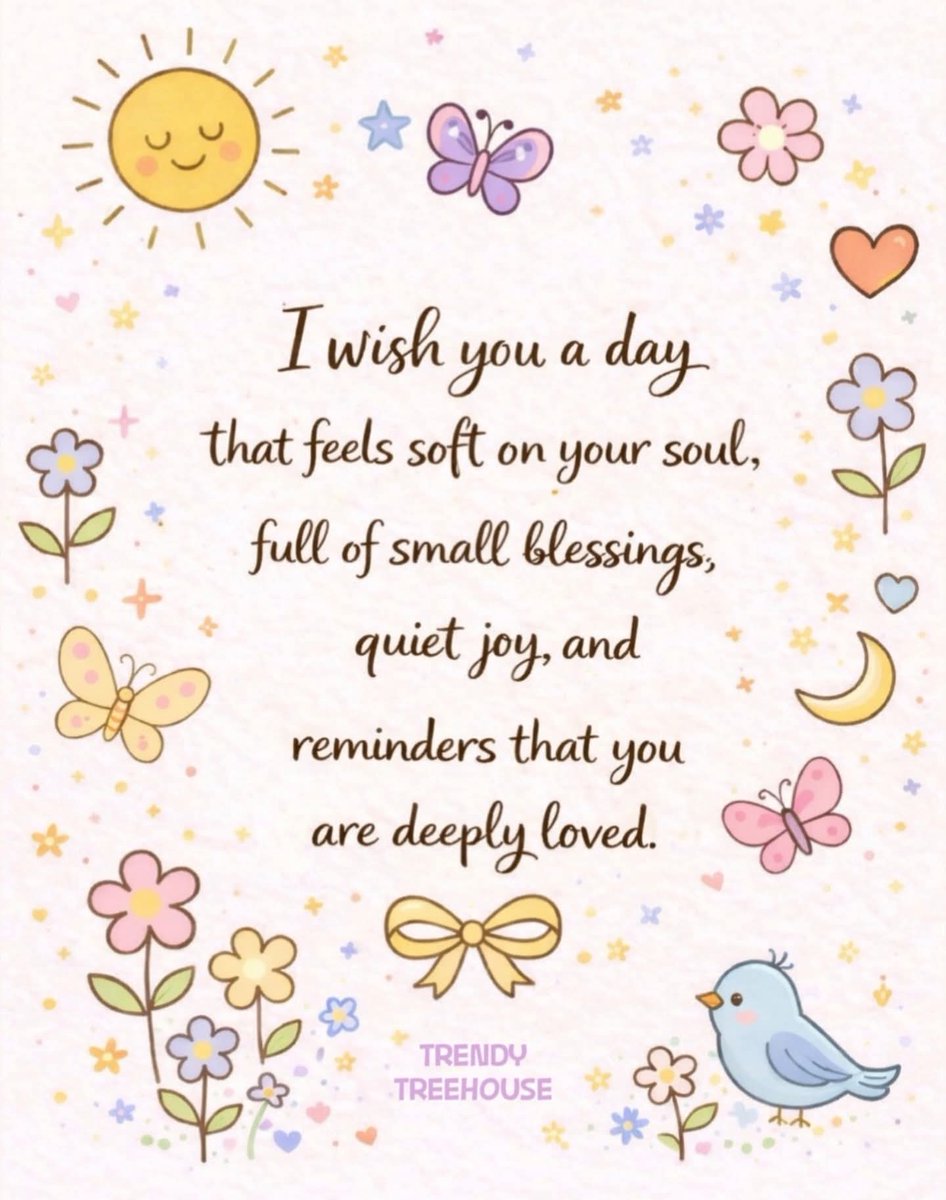 I wish you a day
that feels soft on your soul,
full of small blessings,
quiet joy, and
reminders that you
are deeply loved.
TRENDY
TREEHOUSE